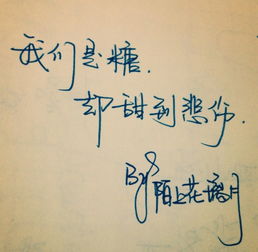 我们是糖.
却甜到悲伤.
By 陌上花瑭月